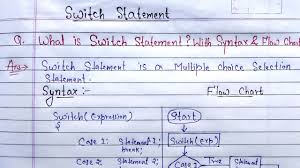 Switch Statement
Q. What is Switch Statement? With Syntax & Flow Chart
Ans→ Switch Statement is a Multiple choice Selection
Statement.
Syntax :- Flow Chart
Switch(expression) Start
{ Switch(exp)
Case 1: Statement 1;
break;
Case 2: Statement 2; Case 1 True